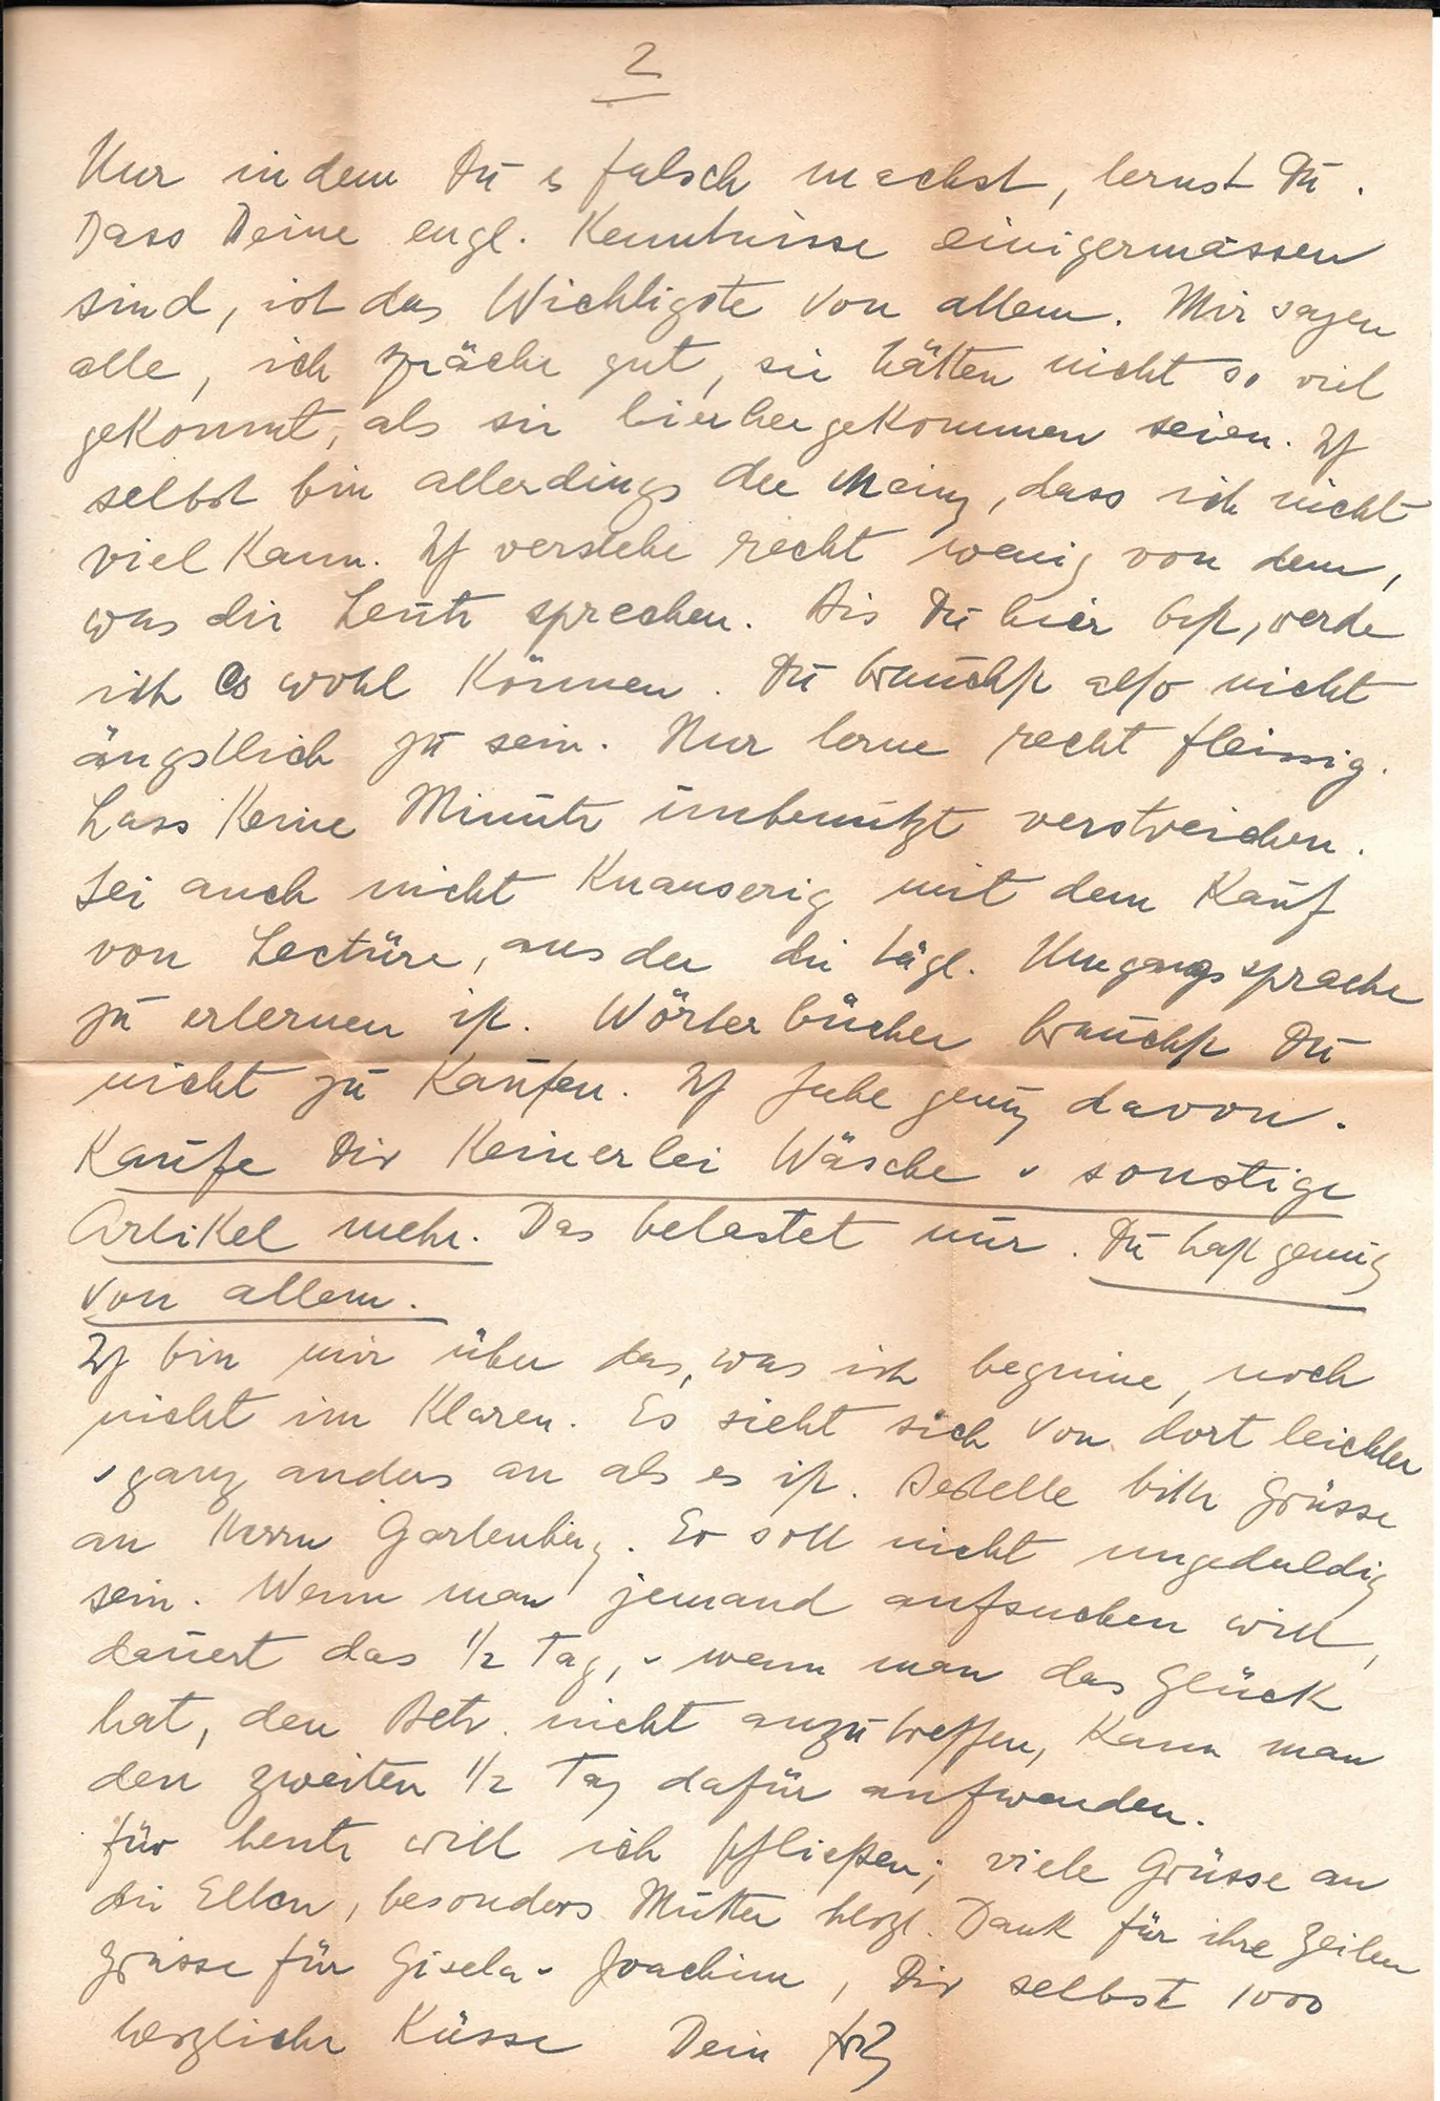 2
Nur indem Du es falsch machst, lernst Du.
Dass Deine engl. Kenntnisse einigermassen
sind, ist das Wichtigste von allem. Mir sagen
alle, ich spräche gut, sie hätten nicht so viel
gekonnt, als sie hierhergekommen seien. Ich
selbst bin allerdings der Meing, dass ich nicht
viel kann. Ich verstehe recht wenig von dem,
was die Leute sprechen. Bis Du hier bist, werde
ich es wohl können. Du brauchst also nicht
ängstlich zu sein. Nur lerne recht fleissig.
Lass keine Minute unbenützt verstreichen.
Sei auch nicht knauserig mit dem Kauf
von Lectüre, aus der die tägl. Umgangssprache
zu erlernen ist. Wörterbücher brauchst Du
nicht zu kaufen. Ich habe genug davon.
Kaufe Dir keinerlei Wäsche u sonstige
Artikel mehr. Das belastet nur. Du hast genug
von allem.
Ich bin mir über das, was ich beginne, noch
nicht im Klaren. Es sieht sich von dort leichter
u ganz anders an als es ist. Bestelle bitte Grüsse
an Herrn Gartenberg. Er soll nicht ungeduldig
sein. Wenn man jemand aufsuchen will,
dauert das 1/2 Tag, u wenn man das Glück
hat, den Betr. nicht anzutreffen, kann man
den zweiten 1/2 Tag dafür aufwenden.
Für heute will ich schließen; viele Grüsse an
die Eltern, besonders Mutter herzl. Dank für ihre Zeilen
Grüsse für Gisela u Joachim, Dir selbst 1000
herzliche Küsse Dein